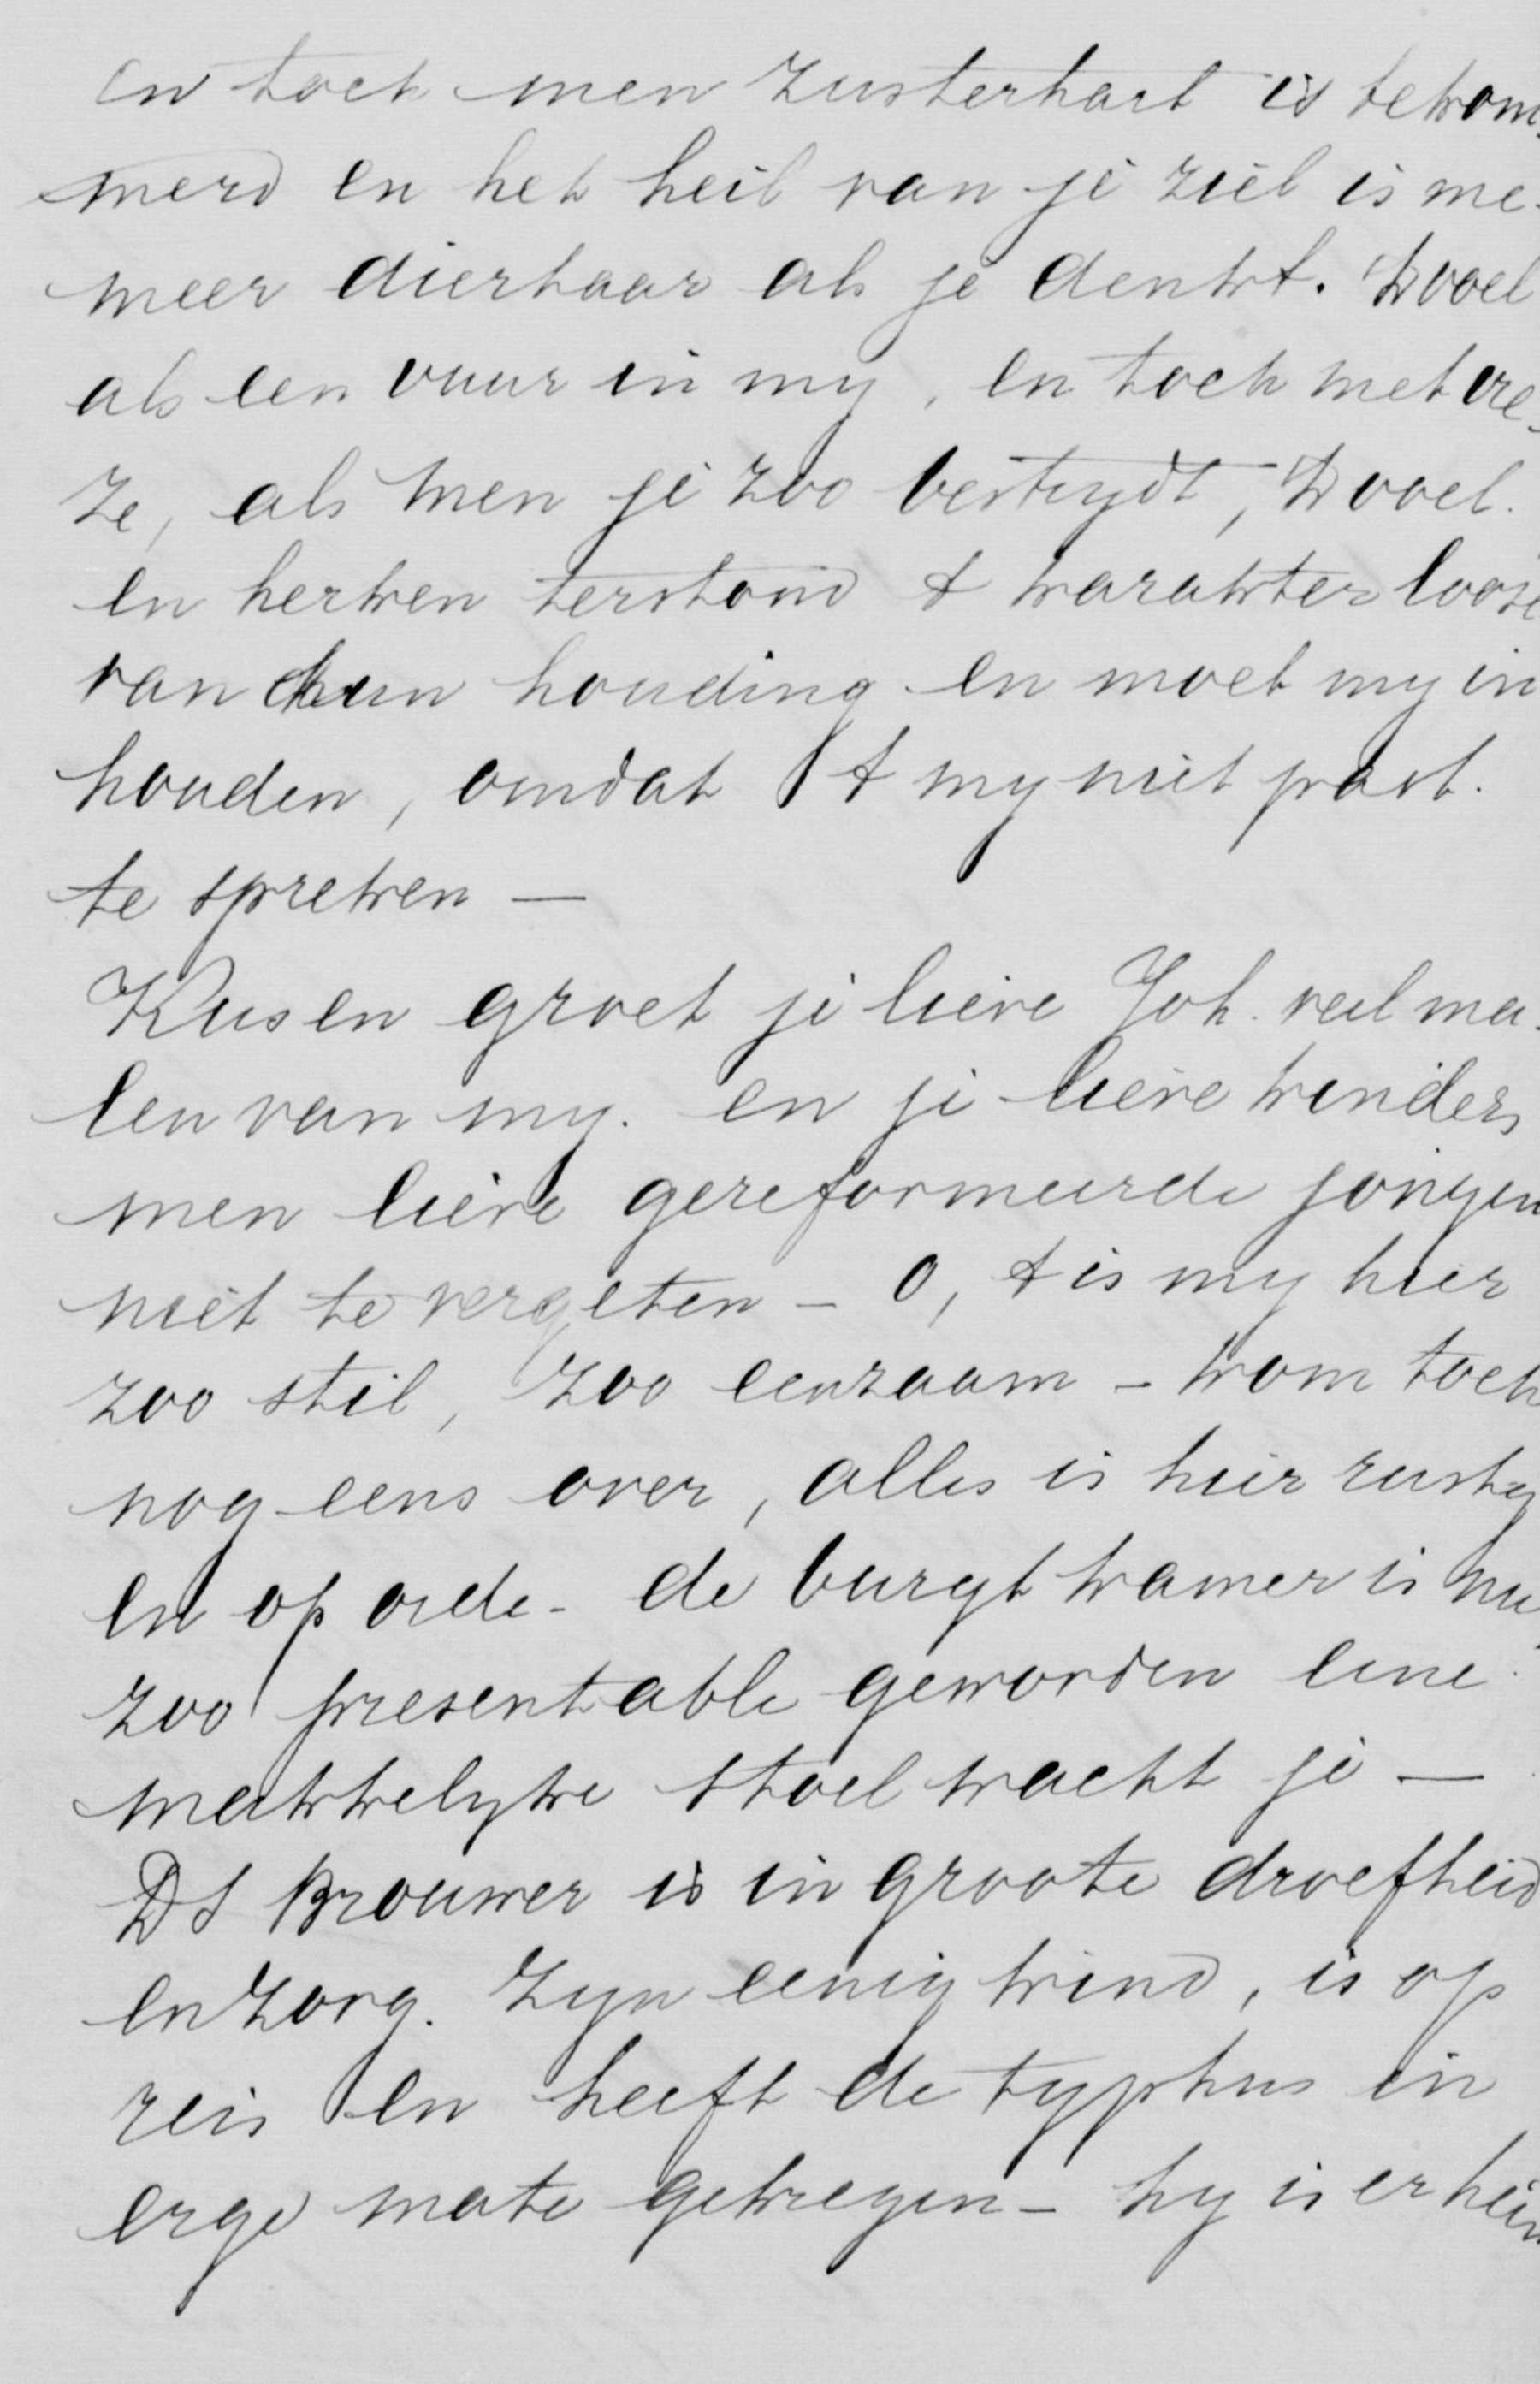 en toch men zusterhart is bekom
merd en het heil van je ziel is me
meer dierbaar als je denkt. k voel
als een vuur in my, en toch met vre-
ze, als men je zoo bestrydt, k voel.
en herken terstond t karakterloose
van hun houding en moet my in
houden, omdat t my niet past.
te spreken —
Kus en groet je lieve Joh. veel ma-
len van my. en je lieve kinders
men lieve gereformeerde jongen
niet te vergeten — O, t is my hier
zoo stil, zoo eenzaam — kom toch
nog eens over, alles is hier rustig
en op orde — de burgt kamer is nu
zoo presentable geworden eene
makkelyke stoel wacht je —
DS Brouwer is in groote droefheid
en zorg. Zyn eenig kind, is op
reis en heeft de typhus in
erge mate gekregen — hy is er heen